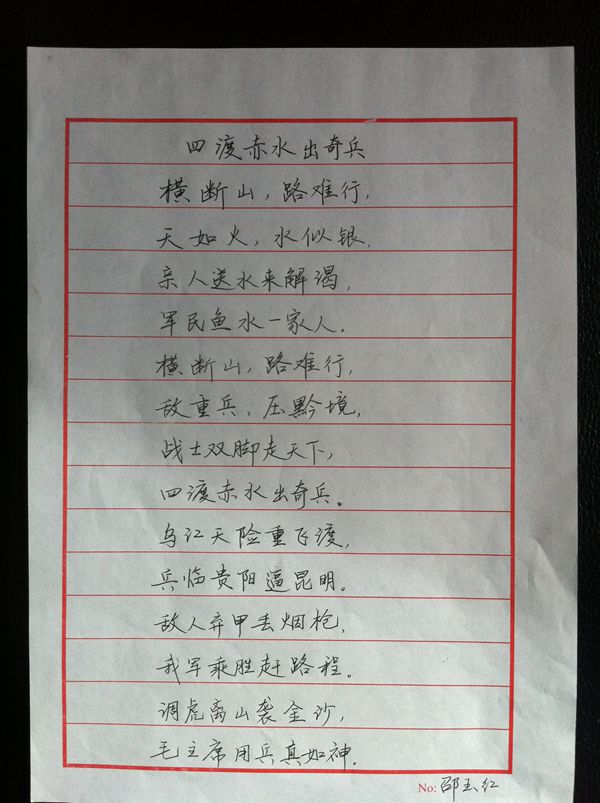 四渡赤水出奇兵
横断山，路难行，
天如火，水似银，
亲人送水来解渴，
军民鱼水一家人．
横断山，路难行，
敌重兵，压黔境，
战士双脚走天下，
四渡赤水出奇兵。
乌江天险重飞渡，
兵临贵阳逼昆明。
敌人弃甲丢烟枪，
我军乘胜赶路程。
调虎离山袭金沙，
毛主席用兵真如神．
No: 邵玉红